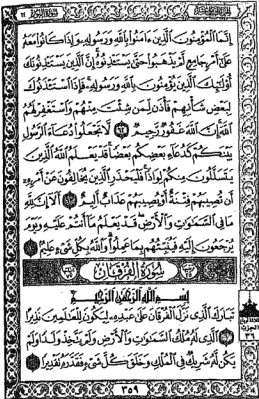 إِنَّمَا الْمُؤْمِنُونَ الَّذِينَ ءَامَنُوا بِاللَّهِ وَرَسُولِهِ وَإِذَا كَانُوا مَعَهُ
عَلَىٰ أَمْرٍ جَامِعٍ لَّمْ يَذْهَبُوا حَتَّىٰ يَسْتَئْذِنُوهُ إِنَّ الَّذِينَ يَسْتَئْذِنُونَكَ
أُولَٰئِكَ الَّذِينَ يُؤْمِنُونَ بِاللَّهِ وَرَسُولِهِ فَإِذَا اسْتَئْذَنُوكَ
لِبَعْضِ شَأْنِهِمْ فَأْذَن لِّمَن شِئْتَ مِنْهُمْ وَاسْتَغْفِرْ لَهُمُ
اللَّهَ إِنَّ اللَّهَ غَفُورٌ رَّحِيمٌ ٦٢ لَّا تَجْعَلُوا دُعَاءَ الرَّسُولِ
بَيْنَكُمْ كَدُعَاءِ بَعْضِكُم بَعْضًا قَدْ يَعْلَمُ اللَّهُ الَّذِينَ
يَتَسَلَّلُونَ مِنكُمْ لِوَاذًا فَلْيَحْذَرِ الَّذِينَ يُخَالِفُونَ عَنْ أَمْرِهِ
أَن تُصِيبَهُمْ فِتْنَةٌ أَوْ يُصِيبَهُمْ عَذَابٌ أَلِيمٌ ٦٣ أَلَا إِنَّ لِلَّهِ
مَا فِي السَّمَاوَاتِ وَالْأَرْضِ قَدْ يَعْلَمُ مَا أَنتُمْ عَلَيْهِ وَيَوْمَ
يُرْجَعُونَ إِلَيْهِ فَيُنَبِّئُهُم بِمَا عَمِلُوا وَاللَّهُ بِكُلِّ شَيْءٍ عَلِيمٌ ٦٤
سُورَةُ الْفُرْقَانِ
بِسْمِ اللَّهِ الرَّحْمَٰنِ الرَّحِيمِ
تَبَارَكَ الَّذِي نَزَّلَ الْفُرْقَانَ عَلَىٰ عَبْدِهِ لِيَكُونَ لِلْعَالَمِينَ نَذِيرًا
١ الَّذِي لَهُ مُلْكُ السَّمَاوَاتِ وَالْأَرْضِ وَلَمْ يَتَّخِذْ وَلَدًا وَلَمْ
يَكُن لَّهُ شَرِيكٌ فِي الْمُلْكِ وَخَلَقَ كُلَّ شَيْءٍ فَقَدَّرَهُ تَقْدِيرًا ٢
٣٥٩